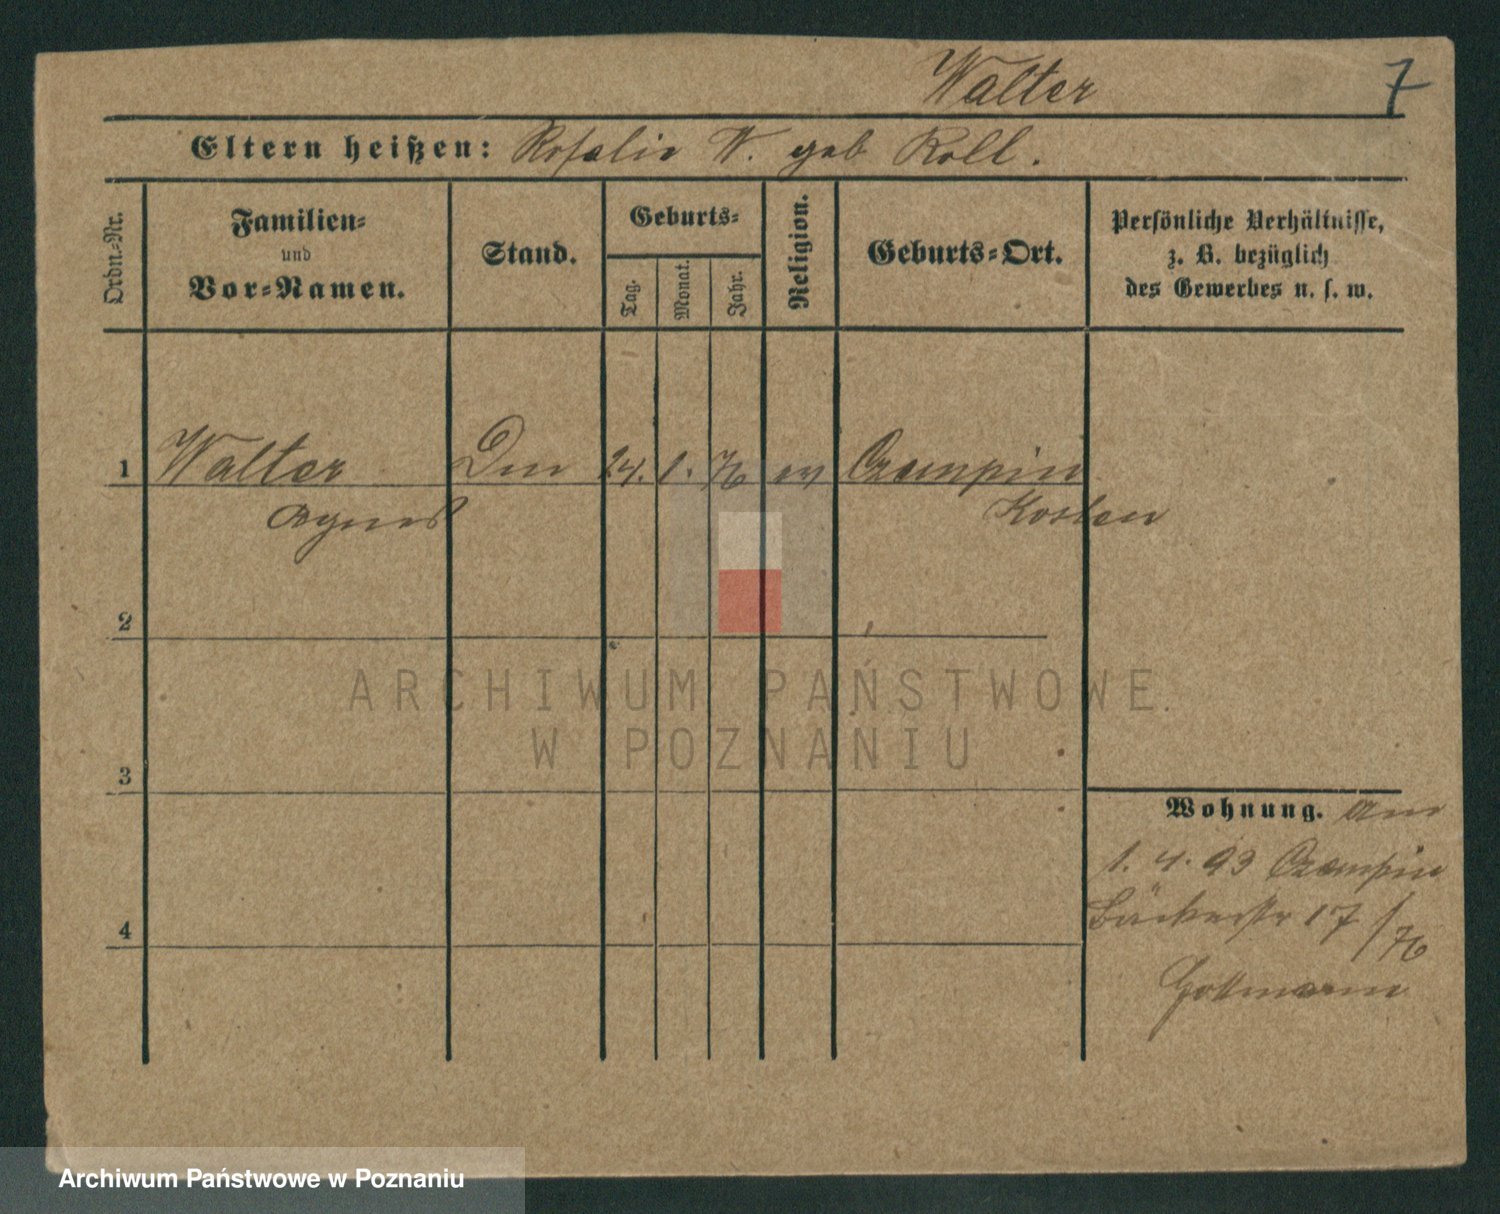 Walter 7
Eltern heißen: Rosalie W. geb Roll.
Ordn.-Nr.
Familien- und Vor-Namen.
Stand.
Geburts-
Tag.
Monat.
Jahr.
Religion.
Geburts-Ort.
Persönliche Verhältnisse,
z. B. bezüglich
des Gewerbes u. s. w.
1 Walter 24. 1. 76 ev Czempin
Agnes Kosten
2
ARCHIWUM PAŃSTWOWE
W POZNANIU
3
Wohnung. Am
1. 4. 93 Czempin
Bäckerstr 17/76
4
Archiwum Państwowe w Poznaniu